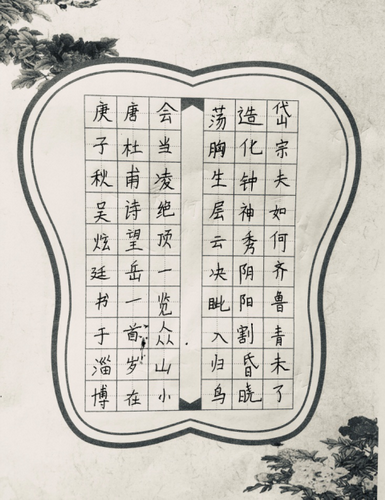 岱宗夫如何齐鲁青未了
造化钟神秀阴阳割昏晓
荡胸生层云决眦入归鸟
会当凌绝顶一览众山小
唐杜甫诗望岳一首岁在
庚子秋吴炫廷书于淄博